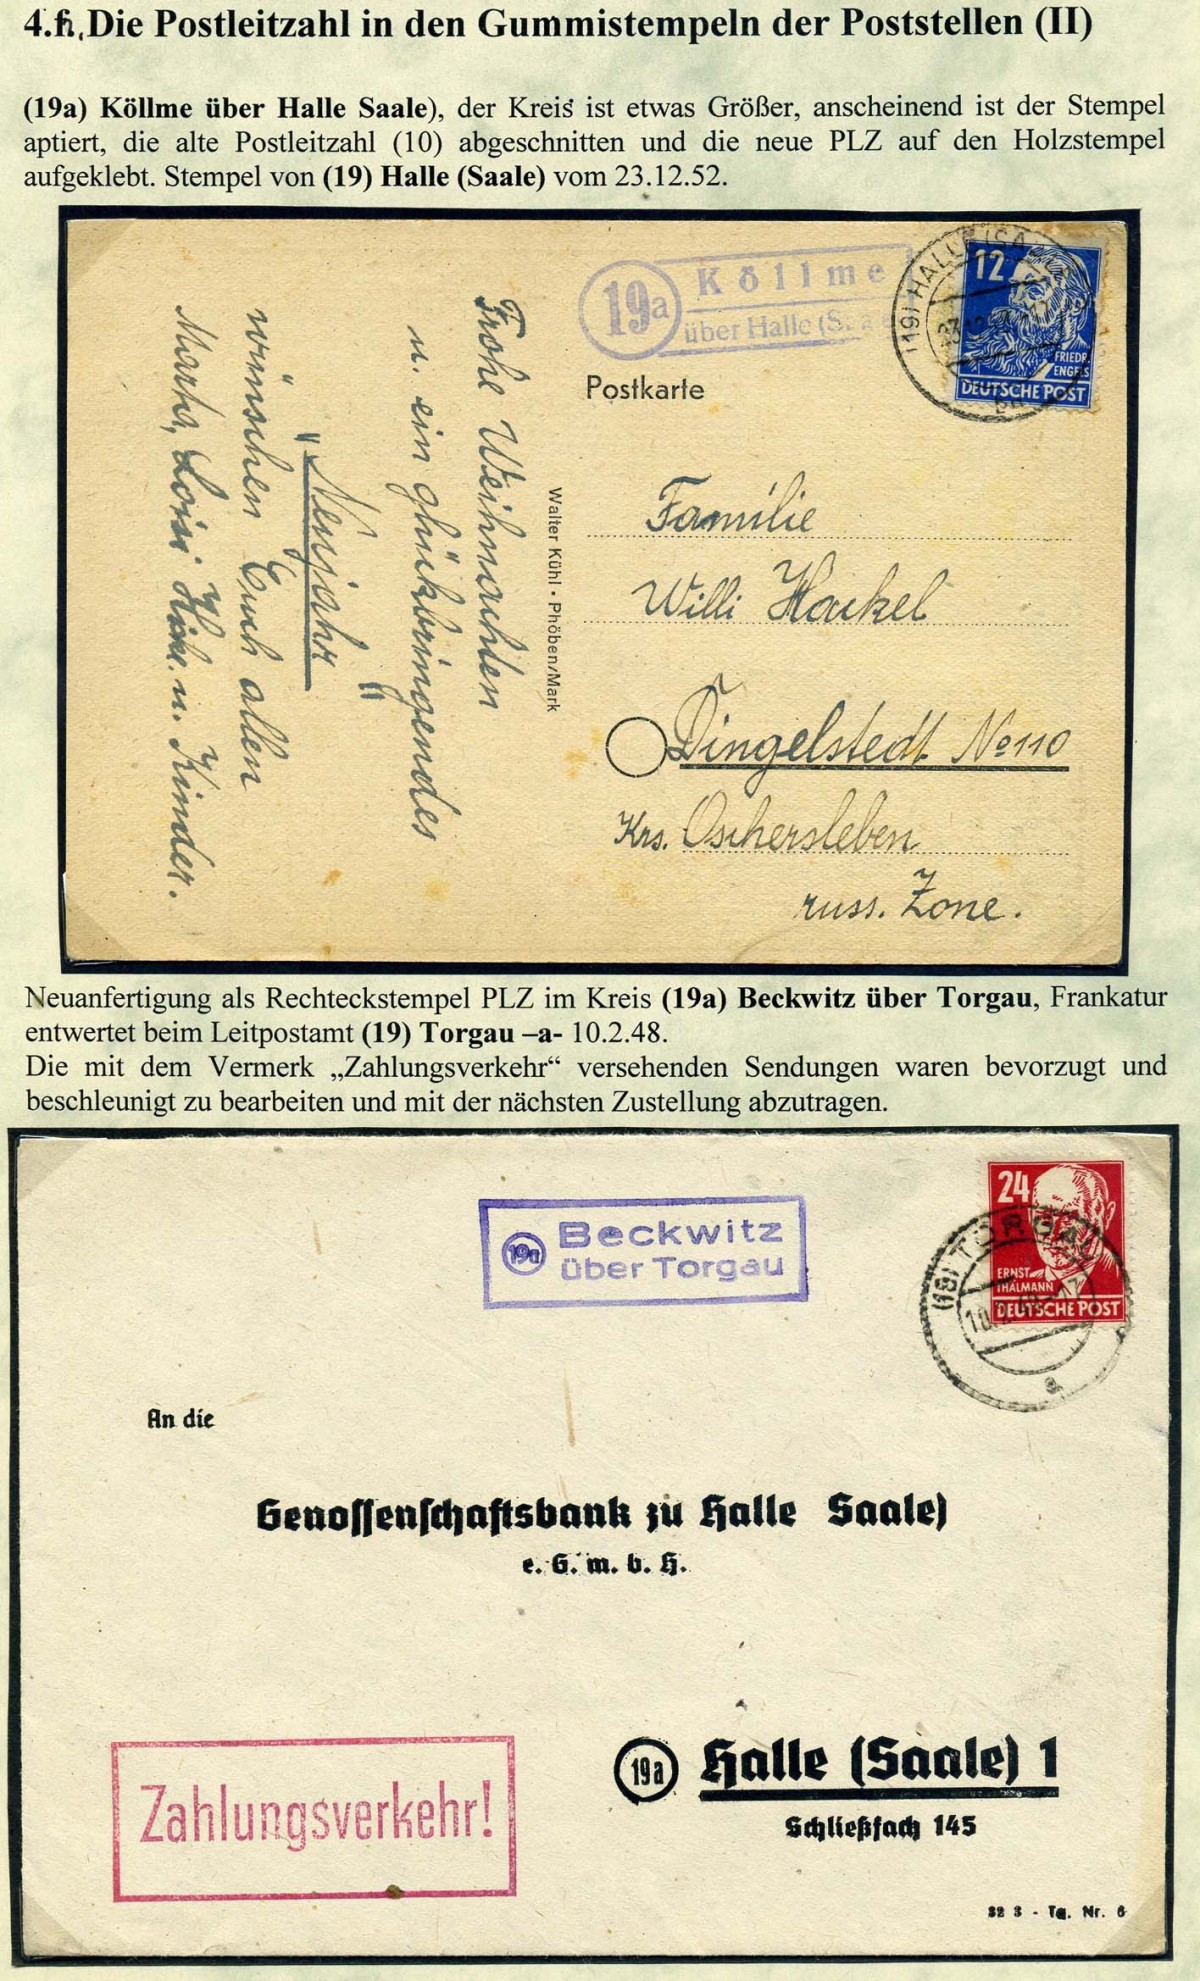 4.h. Die Postleitzahl in den Gummistempeln der Poststellen (II)
(19a) Köllme über Halle Saale), der Kreis ist etwas Größer, anscheinend ist der Stempel
aptiert, die alte Postleitzahl (10) abgeschnitten und die neue PLZ auf den Holzstempel
aufgeklebt. Stempel von (19) Halle (Saale) vom 23.12.52.
19a Köllme
über Halle (Saale
(19) HALLE (SA
23.12.
bh
12
FRIEDR.
ENGELS
DEUTSCHE POST
Postkarte
Frohe Weihnachten
u. ein glückbringendes
"Neujahr"
wünschen Euch allen
Martha, u. Kinder.
Walter Kühl • Phöben/Mark
Familie
Willi Hackel
Dingelstedt No 110
Krs. Oschersleben
russ. Zone.
Neuanfertigung als Rechteckstempel PLZ im Kreis (19a) Beckwitz über Torgau, Frankatur
entwertet beim Leitpostamt (19) Torgau –a- 10.2.48.
Die mit dem Vermerk „Zahlungsverkehr“ versehenden Sendungen waren bevorzugt und
beschleunigt zu bearbeiten und mit der nächsten Zustellung abzutragen.
19a Beckwitz
über Torgau
24
ERNST
THÄLMANN
DEUTSCHE POST
(19) TORGAU
10.2.48-17
a
An die
Genossenschaftsbank zu Halle Saale)
e. G. m. b. H.
19a Halle (Saale) 1
Schließfach 145
Zahlungsverkehr!
32 3 - Tg. Nr. 6